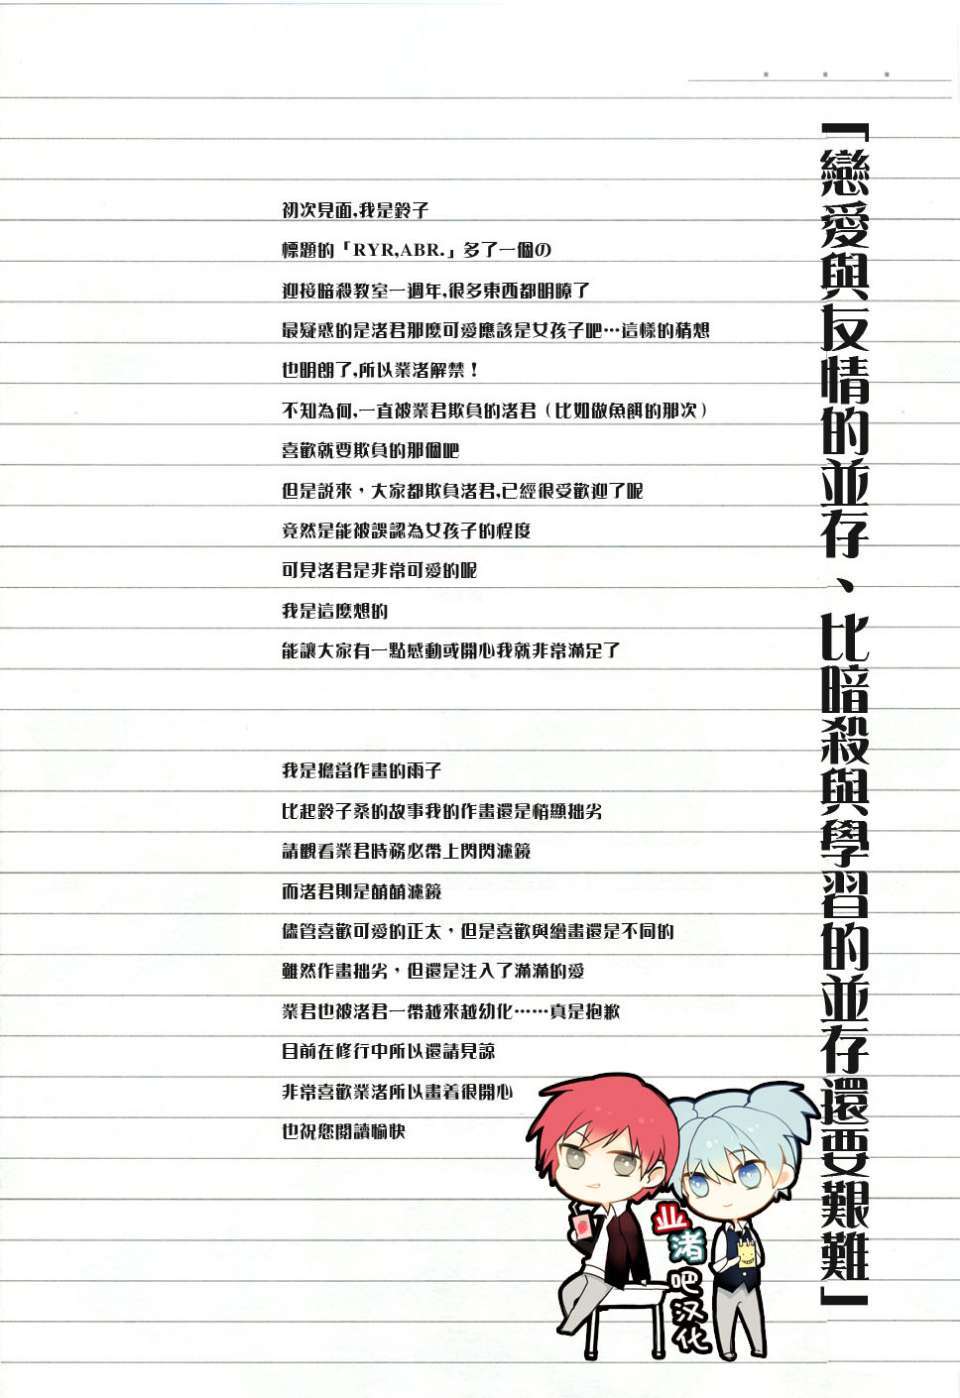 「戀愛與友情的並存、比暗殺與學習的並存還要艱難」
初次見面,我是鈴子
標題的「RYR,ABR.」多了一個の
迎接暗殺教室一週年,很多東西都明瞭了
最疑惑的是渚君那麼可愛應該是女孩子吧…這樣的猜想
也明朗了,所以業渚解禁！
不知為何,一直被業君欺負的渚君（比如做魚餌的那次）
喜歡就要欺負的那個吧
但是說來，大家都欺負渚君,已經很受歡迎了呢
竟然是能被誤認為女孩子的程度
可見渚君是非常可愛的呢
我是這麼想的
能讓大家有一點感動或開心我就非常滿足了
我是擔當作畫的雨子
比起鈴子桑的故事我的作畫還是稍顯拙劣
請觀看業君時務必帶上閃閃濾鏡
而渚君則是萌萌濾鏡
儘管喜歡可愛的正太，但是喜歡與繪畫還是不同的
雖然作畫拙劣，但還是注入了滿滿的愛
業君也被渚君一帶越來越幼化……真是抱歉
目前在修行中所以還請見諒
非常喜歡業渚所以畫着很開心
也祝您閱讀愉快
业渚吧汉化